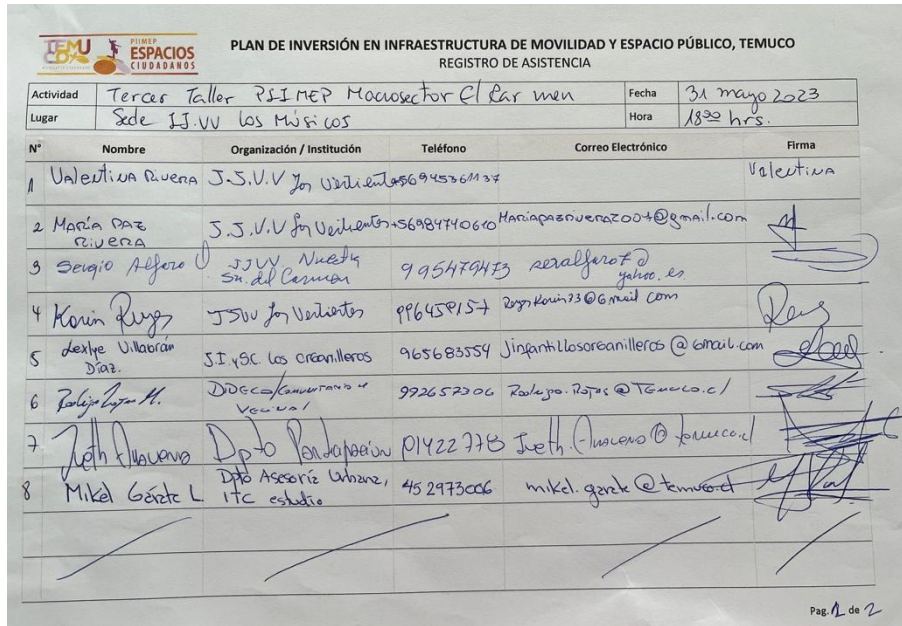 TEMUCO
PIIMEP
ESPACIOS
CIUDADANOS
PLAN DE INVERSIÓN EN INFRAESTRUCTURA DE MOVILIDAD Y ESPACIO PÚBLICO, TEMUCO
REGISTRO DE ASISTENCIA
Actividad Tercer Taller PSIMEP Macrosector El Carmen Fecha 31 mayo 2023
Lugar Sede JJ.VV Los Músicos Hora 18:30 hrs.
N° Nombre Organización / Institución Teléfono Correo Electrónico Firma
1 Valentina Rivera J.J.V.V Los Vertientes +56945361137 Valentina
2 María Paz Rivera J.J.V.V Los Vertientes +56984740610 Mariapazrivera2004@gmail.com
3 Sergio Alfaro JJVV Nuestra Sn. del Carmen 995479473 seralfaro7@yahoo.es
4 Karin Reyes JJVV Los Vertientes 996459157 ReyesKarin23@Gmail com
5 Lexlye Villabrán Díaz. J.I.ySC. Los creanilleros 965683554 @Gmail.com
6 M. DIDECO/ 992652306 Rodrigo.Rojas@Temuco.cl
7 Iveth Dpto Participación @temuco.cl
8 Mikel Gárate L Dpto Asesoría Urbana, ITC estudio 45 2973006 mikel.garate@temuco.cl
Pag. 1 de 2